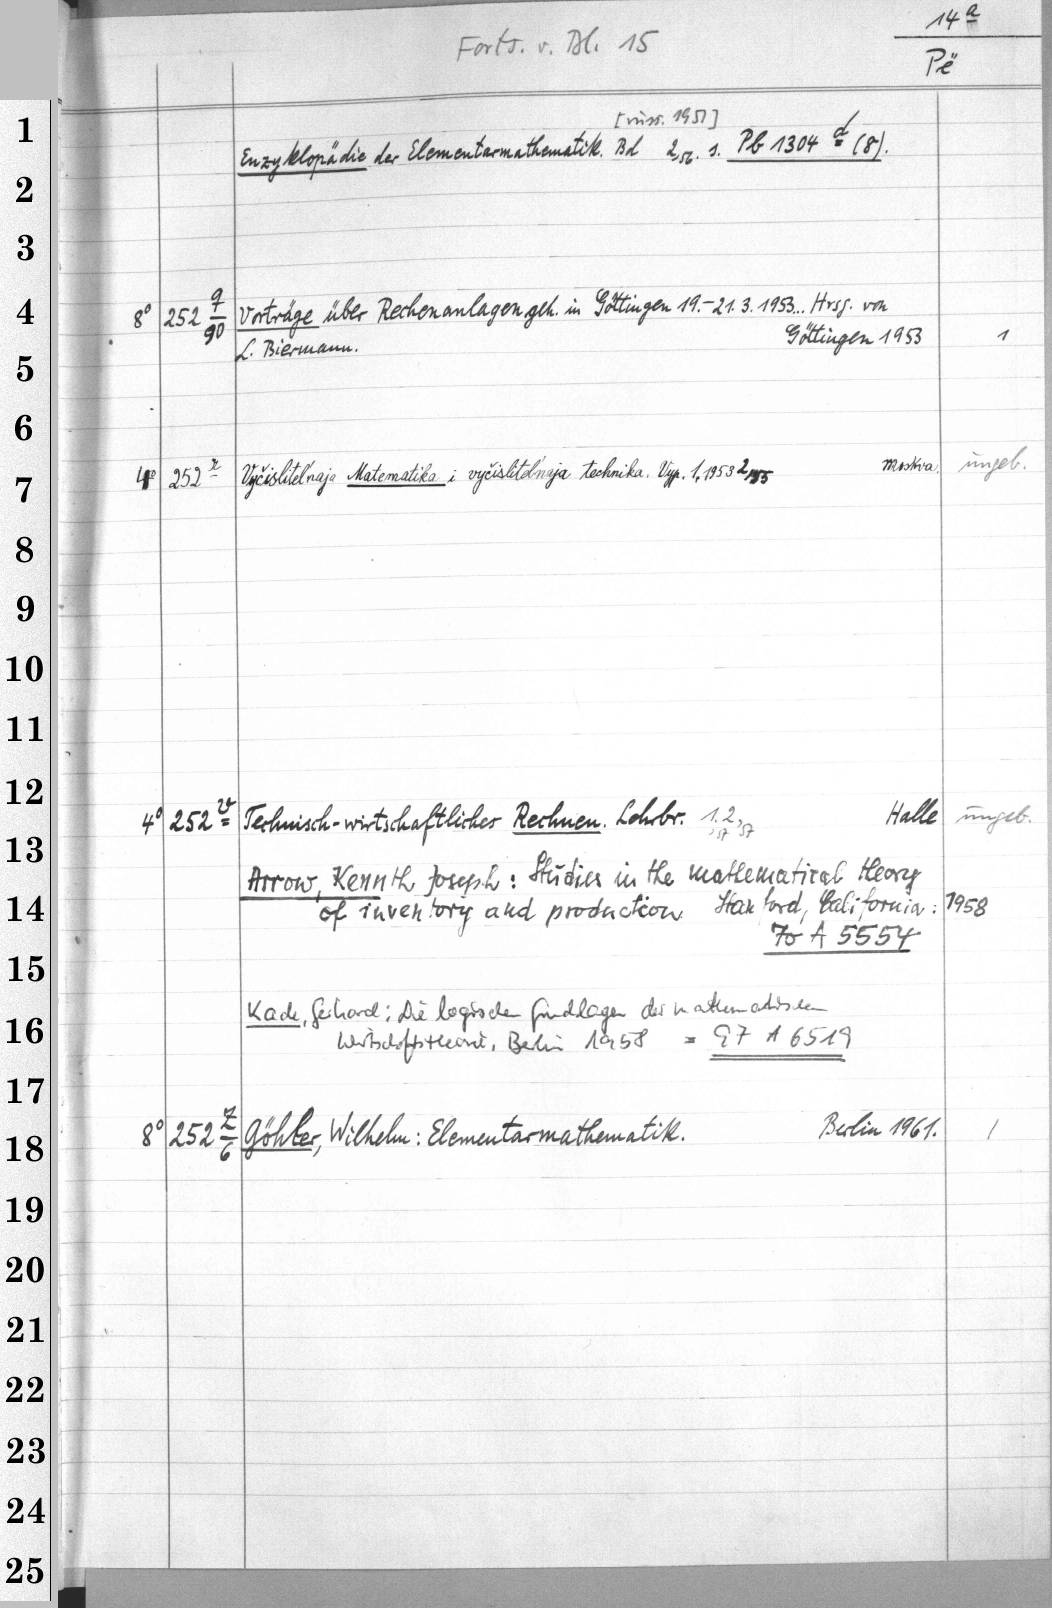 14 a
Forts. v. Bl. 15
Pë
1
[russ. 1951]
Enzyklopädie der Elementarmathematik. Bd 2,56. s. Pb 1304 d (8).
2
3
4
8° 252 q/90 Vorträge über Rechenanlagen geh. in Göttingen 19.-21.3.1953.. Hrsg. von
L. Biermann. Göttingen 1953 1
5
6
7
4° 252 r Vyčislitel'naja Matematika i vyčislitel'naja technika. Vyp. 1, 1953 2, 1955 Moskva. ungeb.
8
9
10
11
12
4° 252 v Technisch-wirtschaftliches Rechnen. Lehrbr. 1,57 2,57 Halle ungeb.
13
Arrow, Kennth Joseph: Studies in the mathematical theory
14
of inventory and production Stanford, California: 1958
70 A 5554
15
16
Kade, Gerhard: Die logischen Grundlagen der mathematischen
Wirtschaftstheorie, Berlin 1958 = 97 A 6519
17
18
8° 252 z/6 Göhler, Wilhelm: Elementarmathematik. Berlin 1961. 1
19
20
21
22
23
24
25